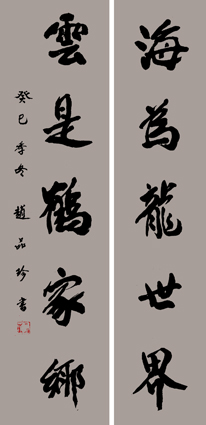 海為龍世界
雲是鶴家鄉
癸巳季冬趙品珍書